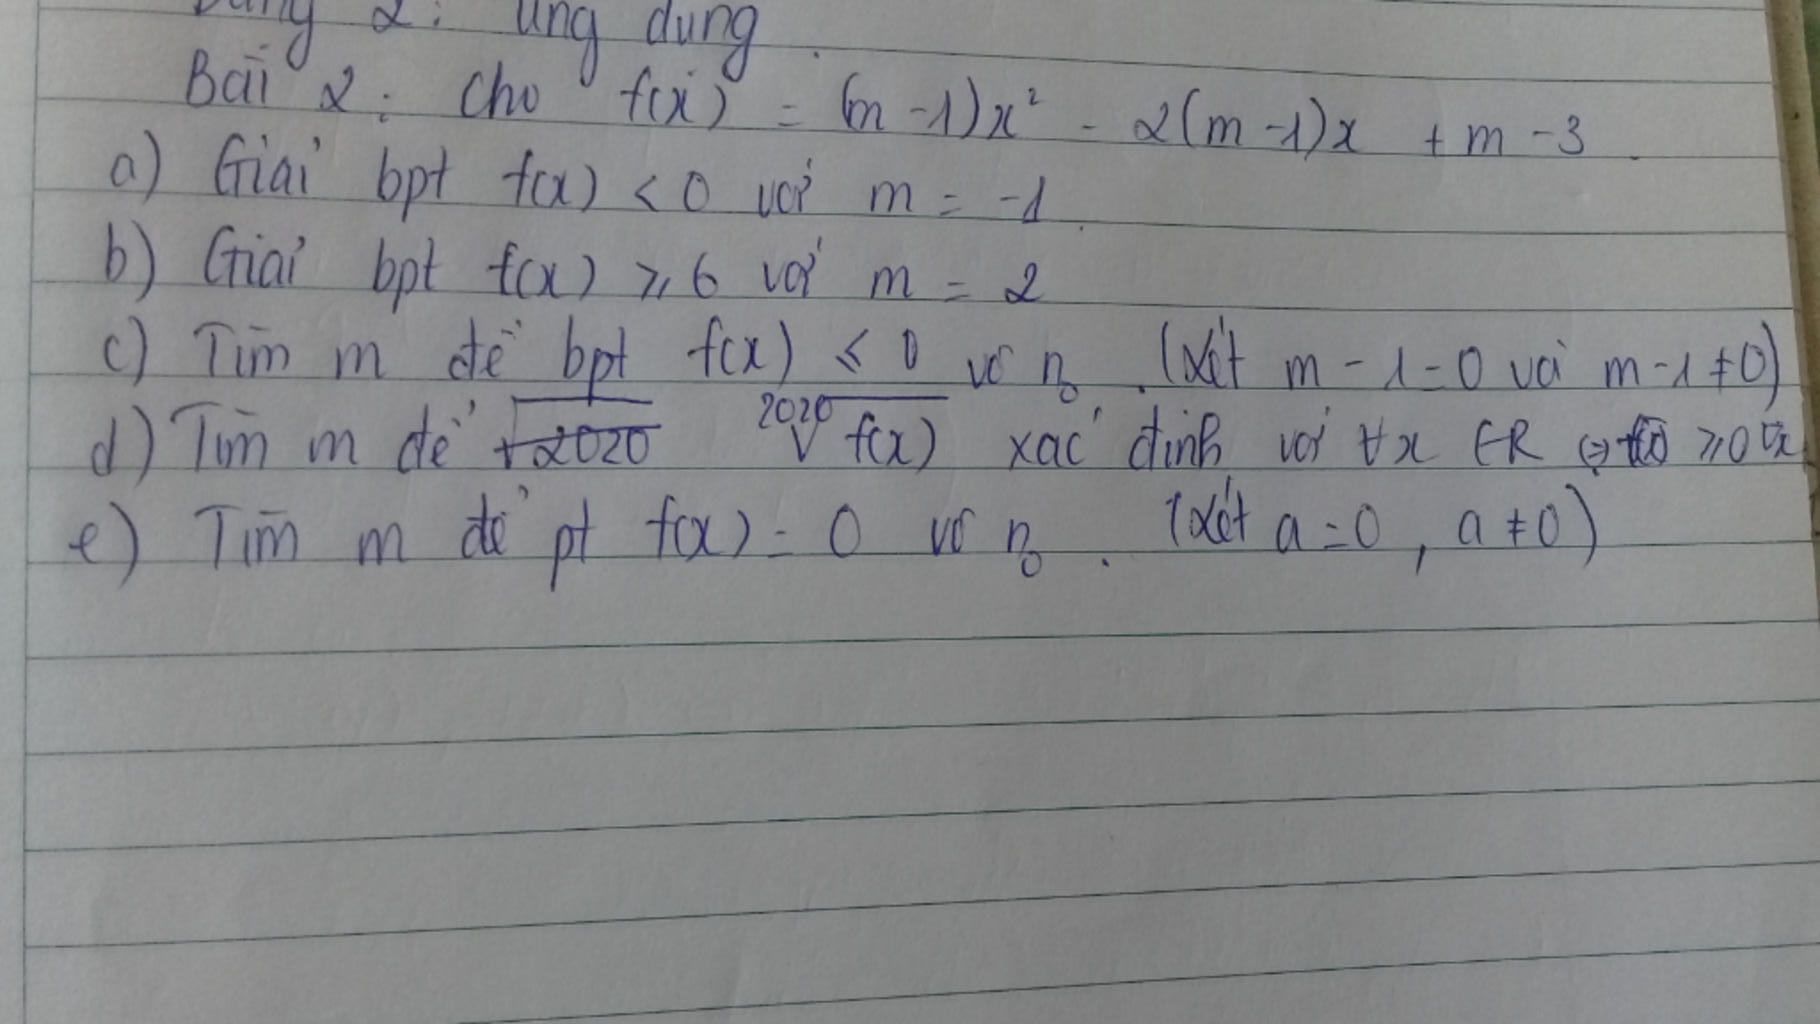 Dạng 2: ứng dụng
Bài 2: Cho f(x) = (m-1)x² - 2(m-1)x + m-3.
a) Giải bpt f(x) < 0 với m = -1.
b) Giải bpt f(x) ⩾ 6 với m = 2
c) Tìm m để bpt f(x) ⩽ 0 vô n₀. (Xét m-1=0 và m-1≠0)
d) Tìm m để √2020 ²⁰²⁰√f(x) xác định với ∀x ∈R ⇔ f(x) ⩾0 ∀x
e) Tìm m để pt f(x) = 0 vô n₀. (Xét a=0, a≠0)